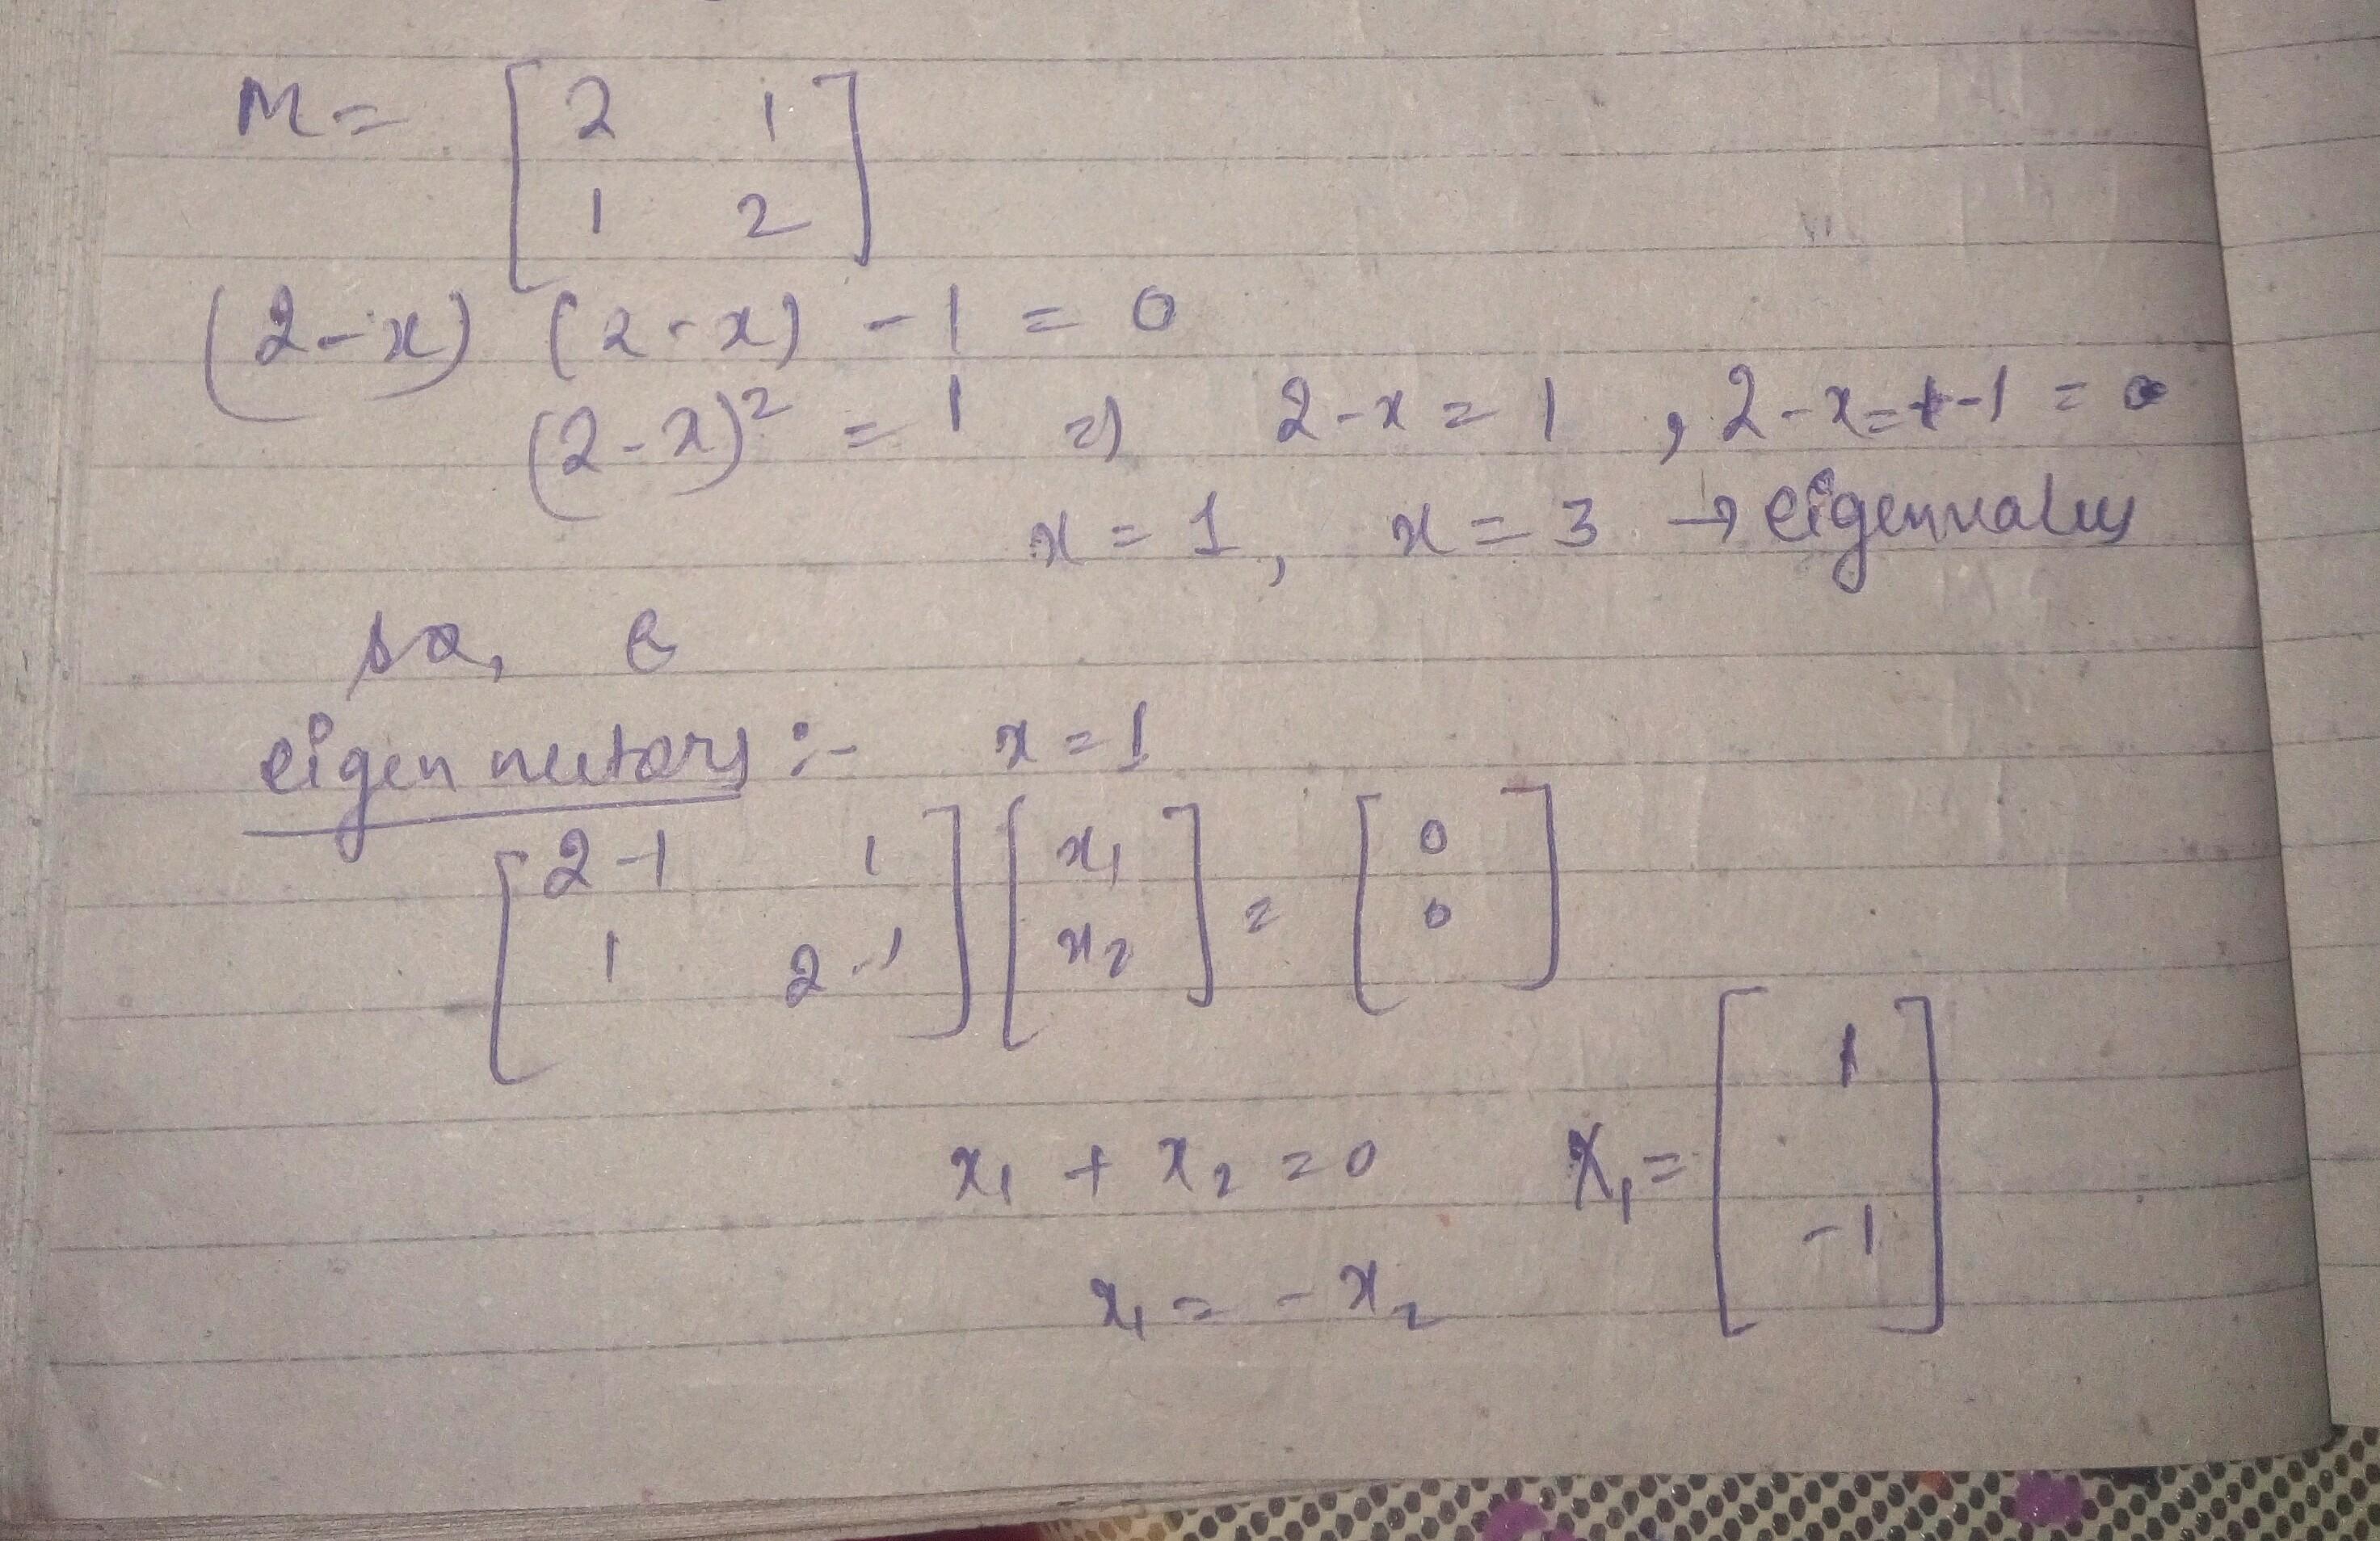 M = [ 2 1
1 2 ]
(2-x) (2-x) - 1 = 0
(2-x)² = 1 ⇒ 2-x = 1 , 2-x = -1 = 0
x = 1, x = 3 → eigenvalues
so, e
eigen vectors :- x = 1
[ 2-1 1 ] [ x₁ ] = [ 0 ]
[ 1 2-1 ] [ x₂ ] [ 0 ]
x₁ + x₂ = 0 X₁ = [ 1
-1 ]
x₁ = - x₂